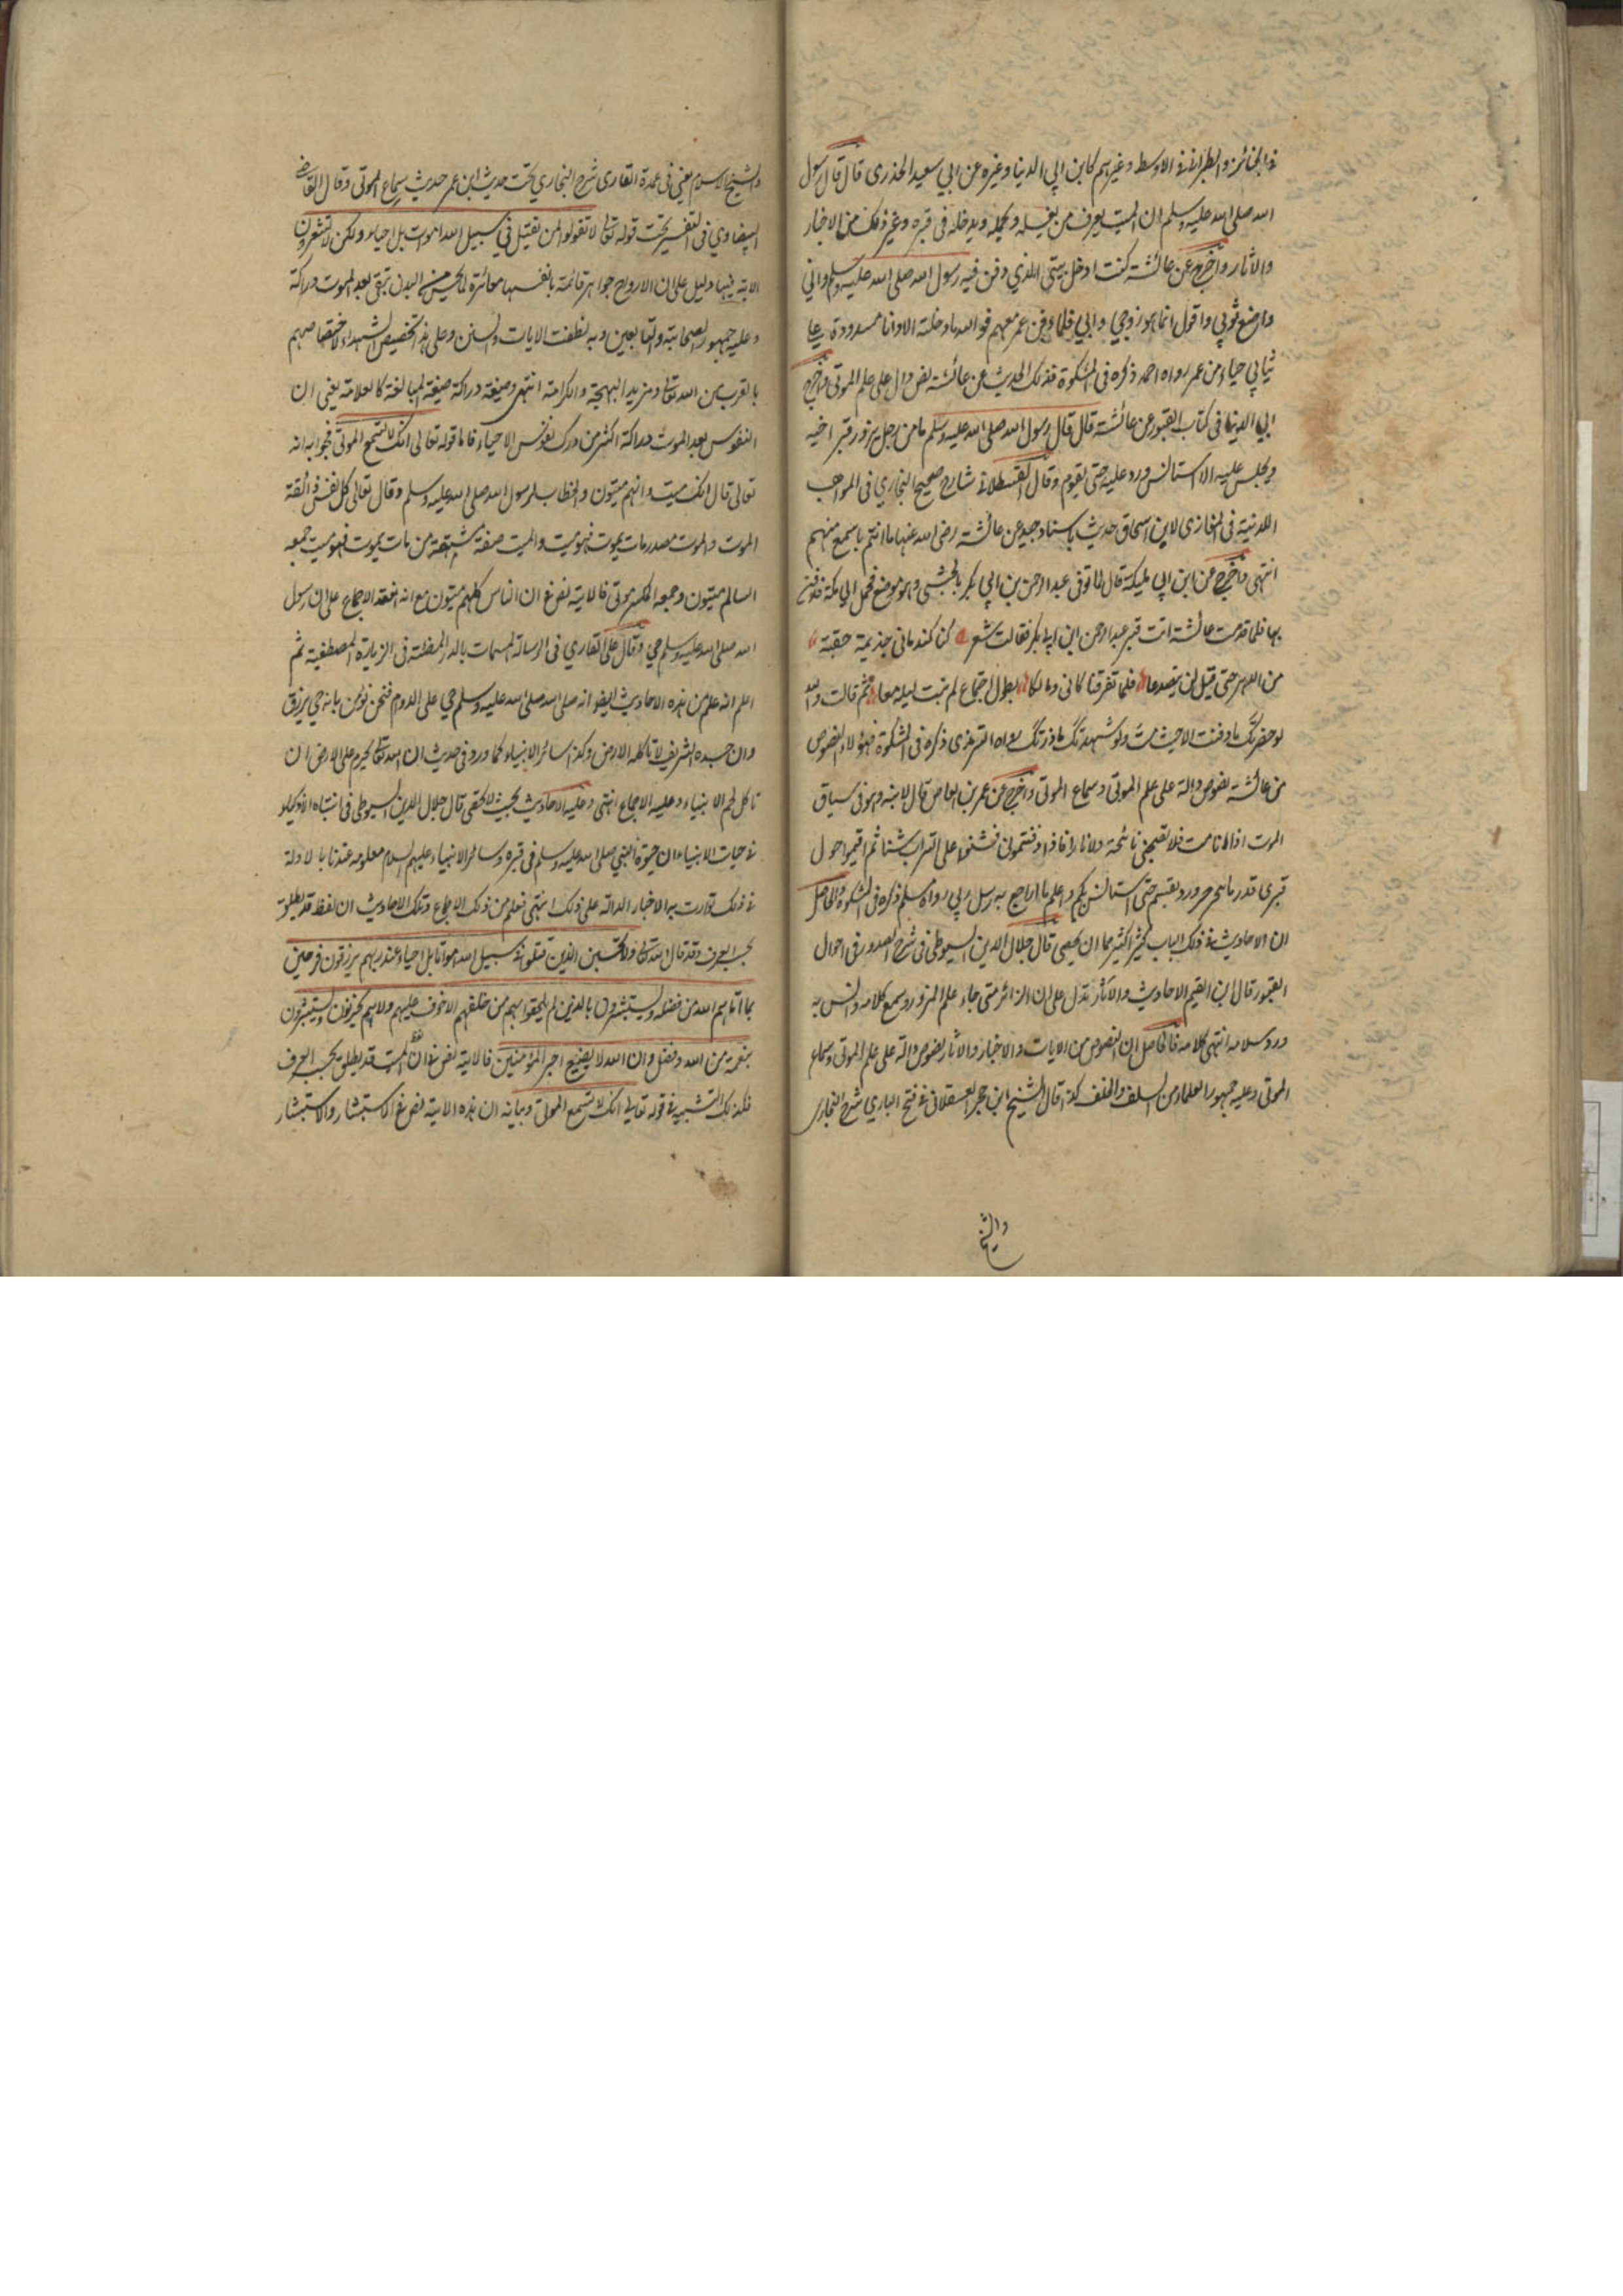 في الجنائز والطبراني في الاوسط وغيرهم كابن ابي الدنيا وغيره عن ابي سعيد الخذرى قال قال رسول
الله صلى الله عليه وسلم ان الميت يعرف من يغسله ويحمله ويدخله فى قبره وغير ذلك من الاخبار
والاثار واخرج عن عائشة كنت ادخل بيتى الذي دفن فيه رسول الله صلى الله عليه وسلم واني
واضع ثوبي واقول انما هو زوجي وابي فلما دفن عمر معهم فوالله ما دخلته الا وانا مسدودة عليا
ثيابي حياء من عمر رواه احمد ذكره فى المشكوة فذلك الحديث عن عائشة نص دال على علم الموتى واخرج
ابي الدنيا فى كتاب القبور عن عائشة قال قال رسول الله صلى الله عليه وسلم ما من رجل يزور قبر اخيه
ويجلس عليه الا استانس ورد عليه حتى يقوم وقال القسطلاني شارح صحيح البخاري فى المواهب
اللدنية فى المغازى لابن اسحاق حديث باسناد جيد عن عائشة رضى الله عنها ما انتم باسمع منهم
انتهى واخرج عن ابن ابي مليكة قال لما توفى عبد الرحمن بن ابي بكر بالحبشى وهو موضع فحمل الى مكة فدفن
بها فلما قدمت عائشة اتت قبر عبد الرحمن ابن ابي بكر فقالت شعر كنا كندمانى جذيمة حقبة
من الدهر حتى قيل لن يتصدعا فلما تفرقنا كانى ومالكا لطول اجتماع لم نبت ليلة معا ثم قالت والله
لو حضرتك ما دفنت الا حيث مت ولو شهدتك ما زرتك رواه الترمذى ذكره فى المشكوة فهؤلاء النصوص
من عائشة نصوص دالة على علم الموتى وسماع الموتى واخرج عن عمر بن العاص قال لابنه وهو فى سياق
الموت اذا انا مت فلا تصحبنى نائحة ولا نار فاذا دفنتمونى فشنوا على التراب شنا ثم اقيموا حول
قبرى قدر ما ينحر جزور ويقسم حتى استانس بكم واعلم ما اراجع به رسل ربى رواه مسلم ذكره فى المشكوة والحاصل
ان الاحاديث فى ذلك الباب كثير اكثير مما ان يحصى قال جلال الدين السيوطى فى شرح الصدور فى احوال
القبور قال ابن القيم الاحاديث والاثار تدل على ان الزائر متى جاء علم المزور وسمع كلامه وانس به
ورد سلامه انتهى كلامه فالحاصل ان النصوص من الايات والاخبار والاثار نصوص دالة على علم الموتى وسماع
الموتى وعليه جمهور العلماء من السلف والخلف كذا قال الشيخ ابن حجر العسقلانى فى فتح البارى شرح البخارى
والشيخ
والشيخ الاسلام عينى فى عمدة القارى شرح البخاري تحت حديث ابن عمر حديث سماع الموتى وقال القاضى
البيضاوي فى التفسير تحت قوله تعالى لا تقولوا لمن يقتل في سبيل الله اموات بل احياء ولكن لا تشعرون
الاية فيها دليل على ان الارواح جواهر قائمة بانفسها مغائرة لما يحس من البدن تبقى بعد الموت دراكة
وعليه جمهور الصحابة والتابعين وبه نطقت الايات والسنن وعلى هذا تخصيص الشهداء لاختصاصهم
بالقرب من الله تعالى ومزيد البهجة والكرامة انتهى وصيغة دراكة صيغة المبالغة كالعلامة يعنى ان
النفوس بعد الموت دراكة اكثر من درك نفوس الاحياء فاما قوله تعالى انك لا تسمع الموتى فجوابه انه
تعالى قال انك ميت وانهم ميتون والخطاب لرسول الله صلى الله عليه وسلم وقال تعالى كل نفس ذائقة
الموت والموت مصدر مات يموت فهو ميت والميت صفة مشتقة من مات يموت فهو ميت جمعه
السالم ميتون وجمعه المكسر موتى فالاية نص فى ان الناس كلهم ميتون مع انه انعقد الاجماع على ان رسول
الله صلى الله عليه وسلم حي وقال على القاري فى الرسالة المسمات بالدرة المضئة فى الزيارة المصطفية ثم
اعلم انه علم من هذه الاحاديث ايضا انه صلى الله صلى الله عليه وسلم حي على الدوام فنحن نؤمن بانه حي يرزق
وان جسده الشريف لا تاكله الارض وكذا سائر الانبياء كما ورد فى حديث ان الله تعالى حرم على الارض ان
تاكل لحم الانبياء وعليه الاجماع انتهى وعليه الاحاديث بحيث لا تحصى قال جلال الدين السيوطى فى انتباه الاذكياء
فى حيات الانبياء ان حيوة النبي صلى الله عليه وسلم فى قبره وسائر الانبياء عليهم السلام معلومة عندنا بالادلة
فى ذلك تواترت به الاخبار الدالة على ذلك انتهى فعلم من ذلك الاجماع وتلك الاحاديث ان لفظ قد يطلق
بحسب العرف وقد قال الله تعالى ولا تحسبن الذين قتلوا فى سبيل الله امواتا بل احياء عند ربهم يرزقون فرحين
بما اتاهم الله من فضله ويستبشرون بالذين لم يلحقوا بهم من خلفهم الا خوف عليهم ولا هم يحزنون يستبشرون
بنعمة من الله وفضل وان الله لا يضيع اجر المؤمنين فالاية نص فى ان لفظ الميت قد يطلق بحسب العرف
فلذلك التشبيه فى قوله تعالى انك لا تسمع الموتى وبيانه ان هذه الاية نص فى الاستبشار والاستبشار